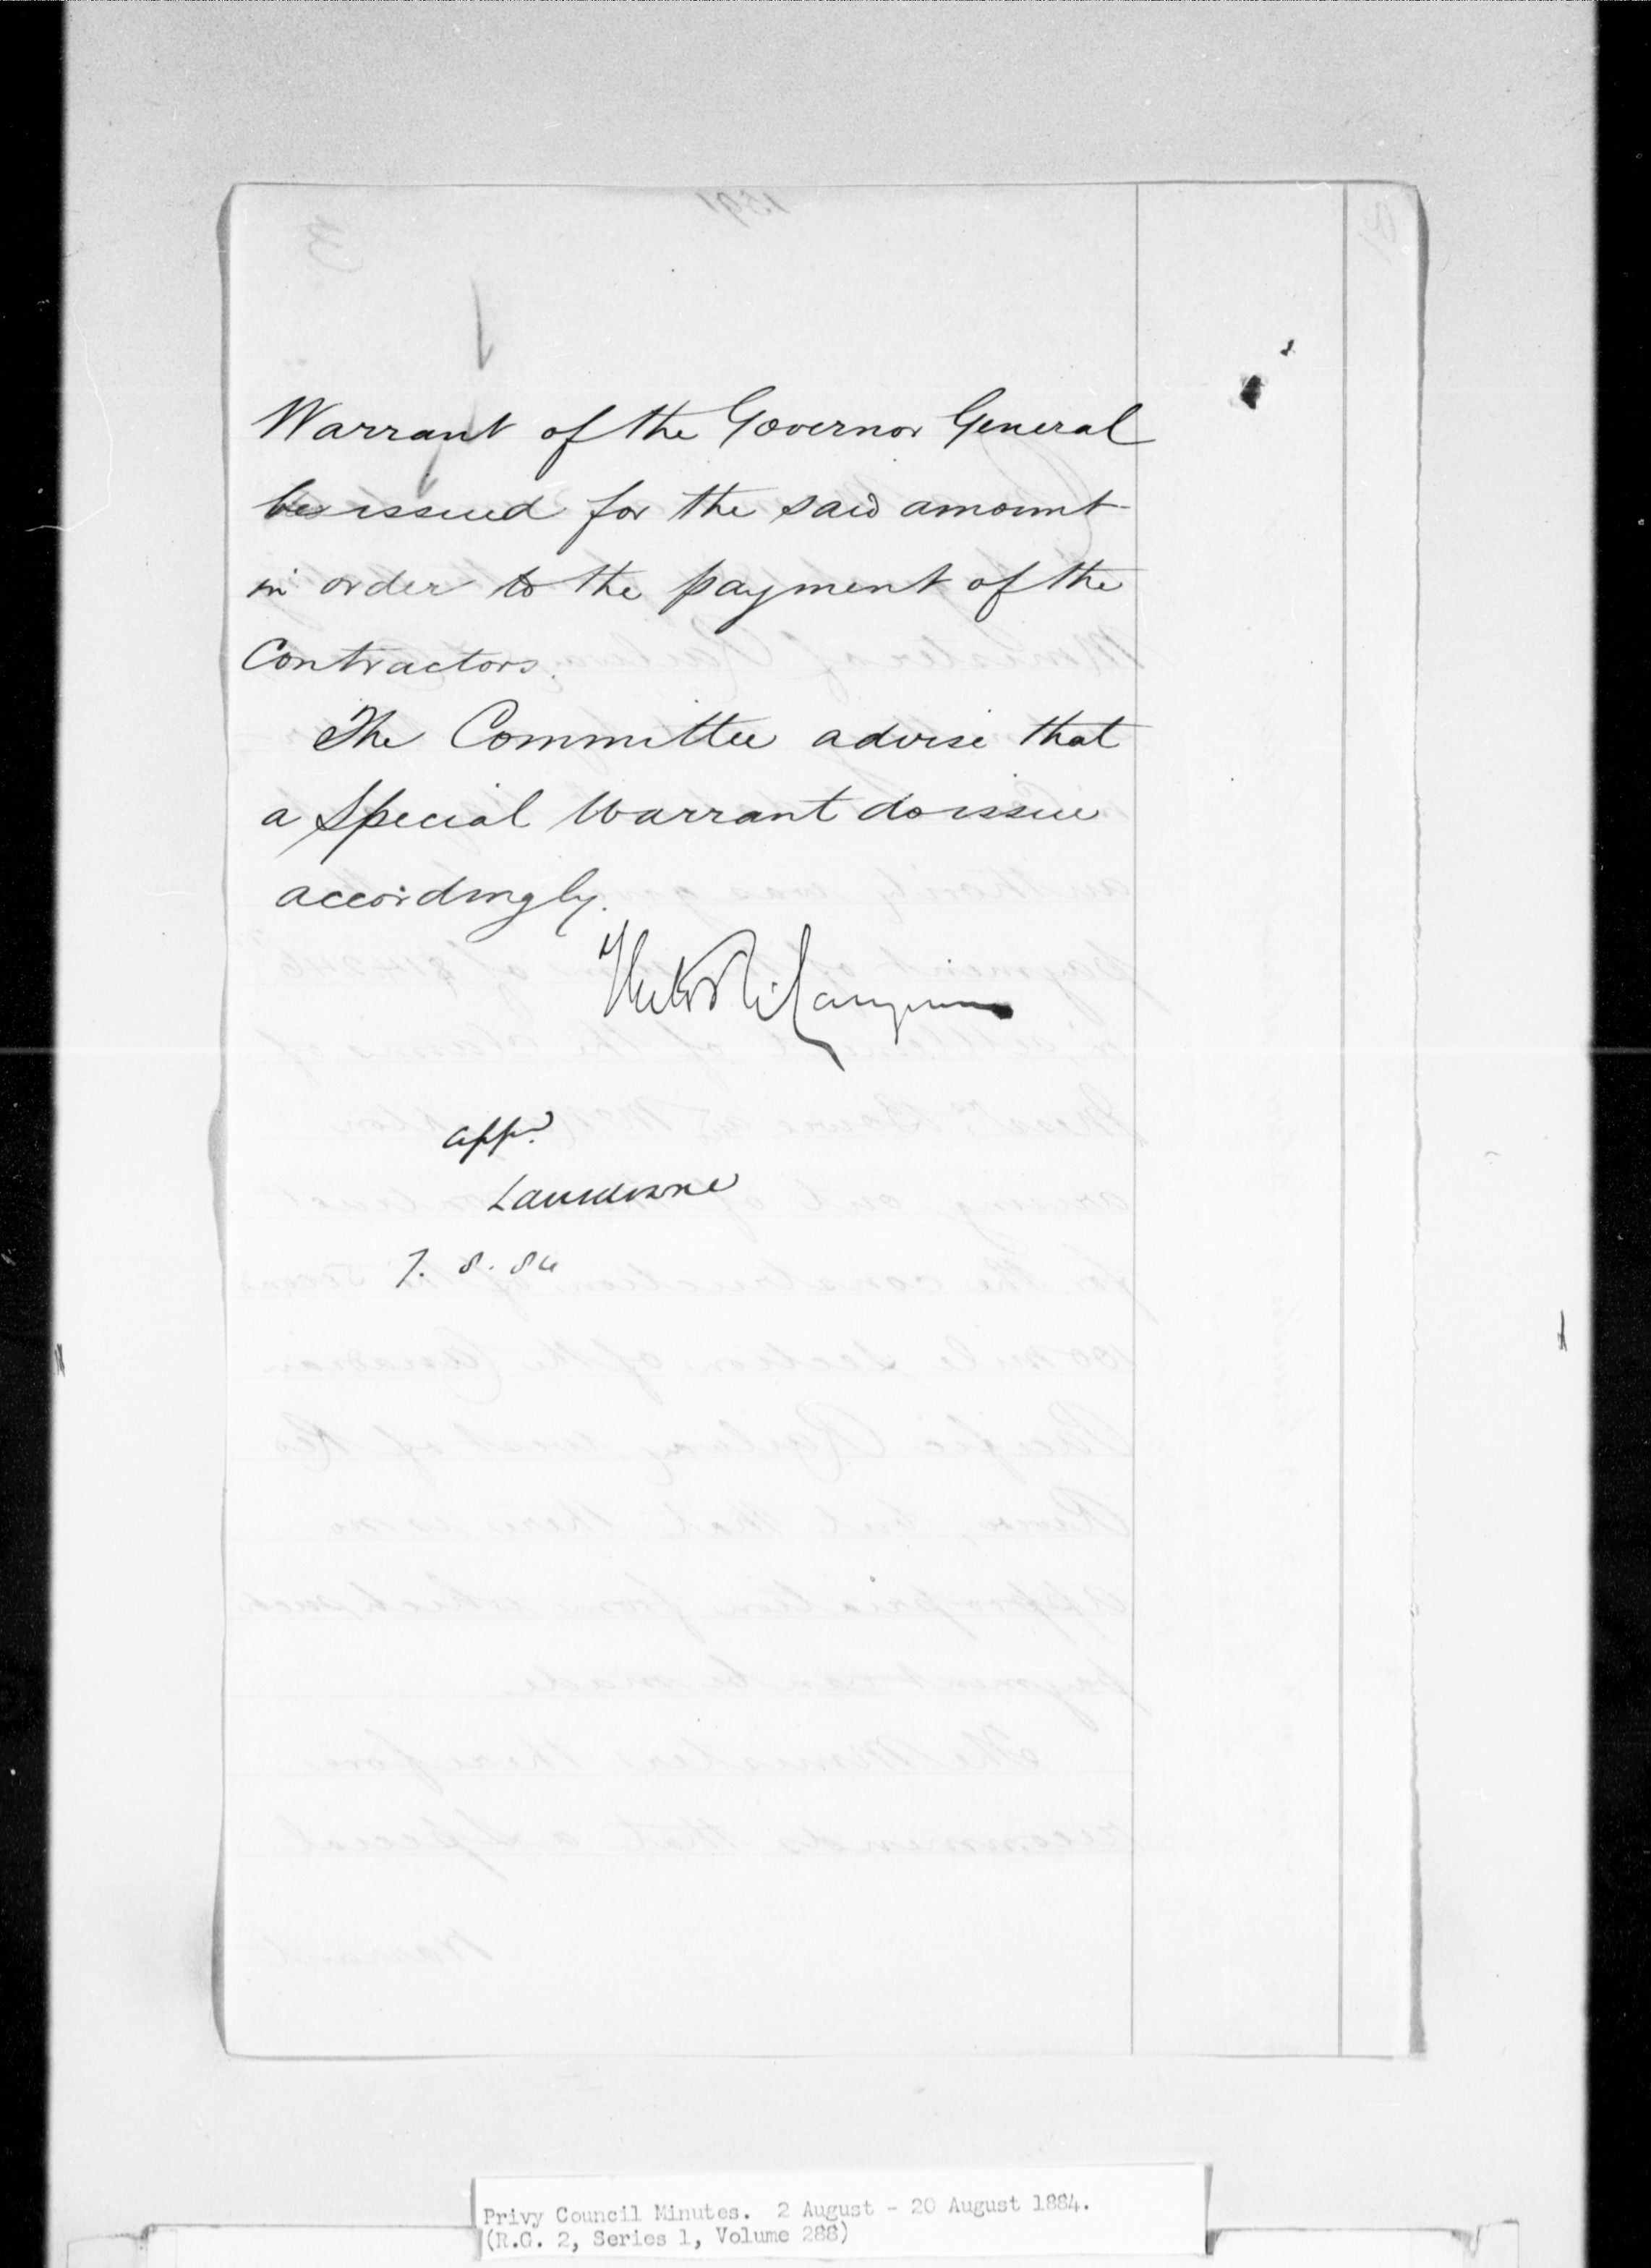 Warrant of the Governor General
be issued for the said amount
in order to the payment of the
Contractors.
The Committee advise that
a Special Warrant do issue
accordingly.
Hector L. Langevin
appd
Lansdowne
7. 8. 84
Privy Council Minutes. 2 August - 20 August 1884.
(R.G. 2, Series 1, Volume 288)